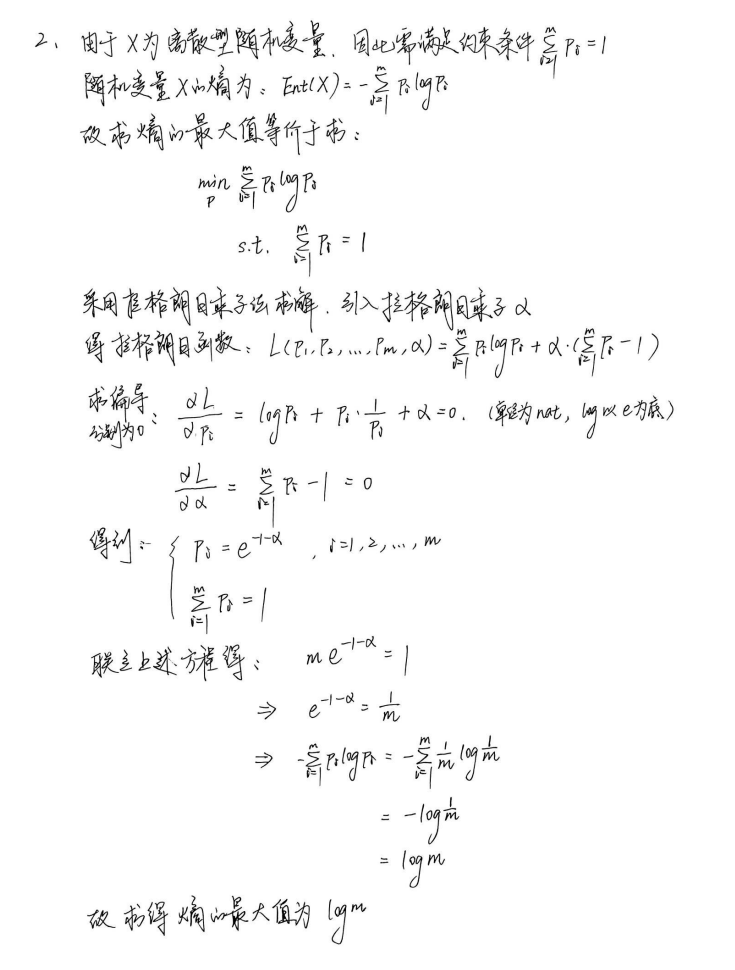 2、由于X为离散型随机变量,因此需满足约束条件 ∑_{i=1}^{m} Pi = 1
随机变量X的熵为:Ent(X) = -∑_{i=1}^{m} Pi log Pi
故求熵的最大值等价于求:
min_P ∑_{i=1}^{m} Pi log Pi
s.t. ∑_{i=1}^{m} Pi = 1
采用拉格朗日乘子法求解,引入拉格朗日乘子 α
得拉格朗日函数:L(P1, P2, ..., Pm, α) = ∑_{i=1}^{m} Pi log Pi + α·(∑_{i=1}^{m} Pi - 1)
求偏导分别为0:αL/αPi = log Pi + Pi·1/Pi + α = 0. (单位为nat,log以e为底)
αL/αα = ∑_{i=1}^{m} Pi - 1 = 0
得到:{ Pi = e^{-1-α} , i=1,2,...,m
∑_{i=1}^{m} Pi = 1
联立上述方程得: m e^{-1-α} = 1
⇒ e^{-1-α} = 1/m
⇒ -∑_{i=1}^{m} Pi log Pi = -∑_{i=1}^{m} 1/m log 1/m
= -log 1/m
= log m
故求得熵的最大值为 log m